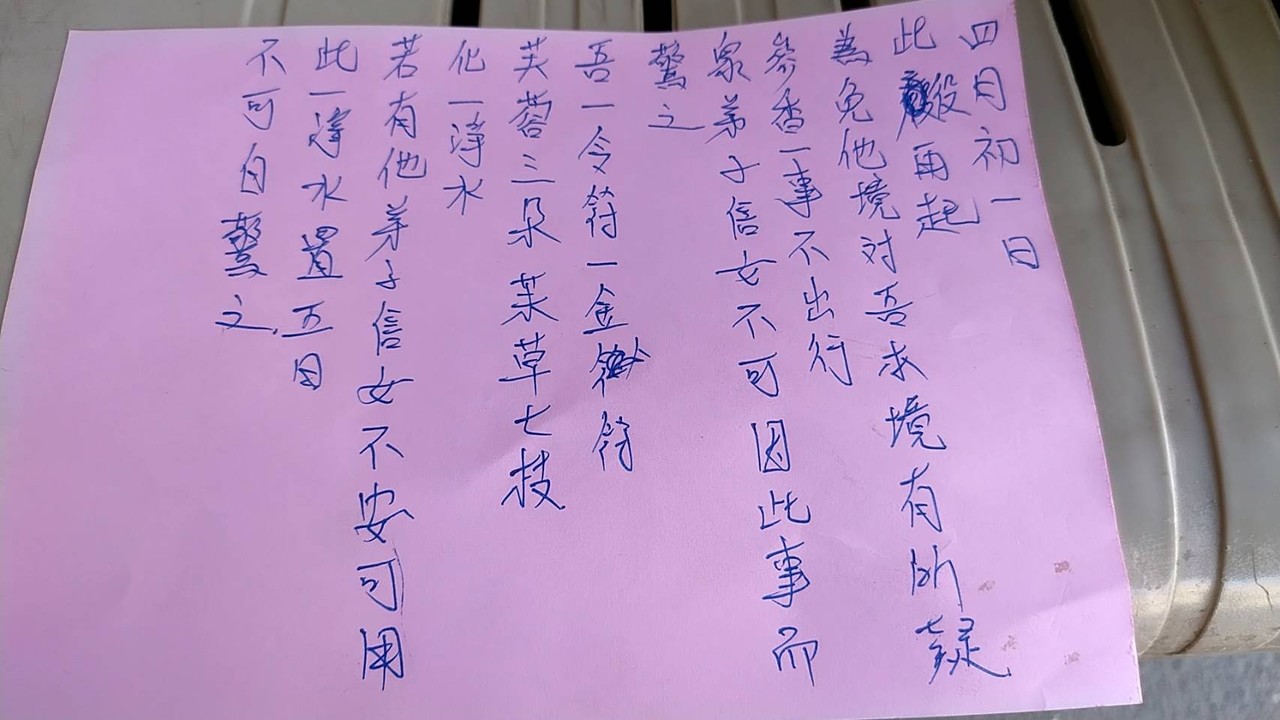 四月初一日
此般再起
為免他境対吾求境有所疑
參香一事不出行
眾弟子信女不可因此事而
驚之
吾一令符一金符
芙蓉三朵茉草七技
化一淨水
若有他弟子信女不安可用
此一淨水置五日
不可自驚之.